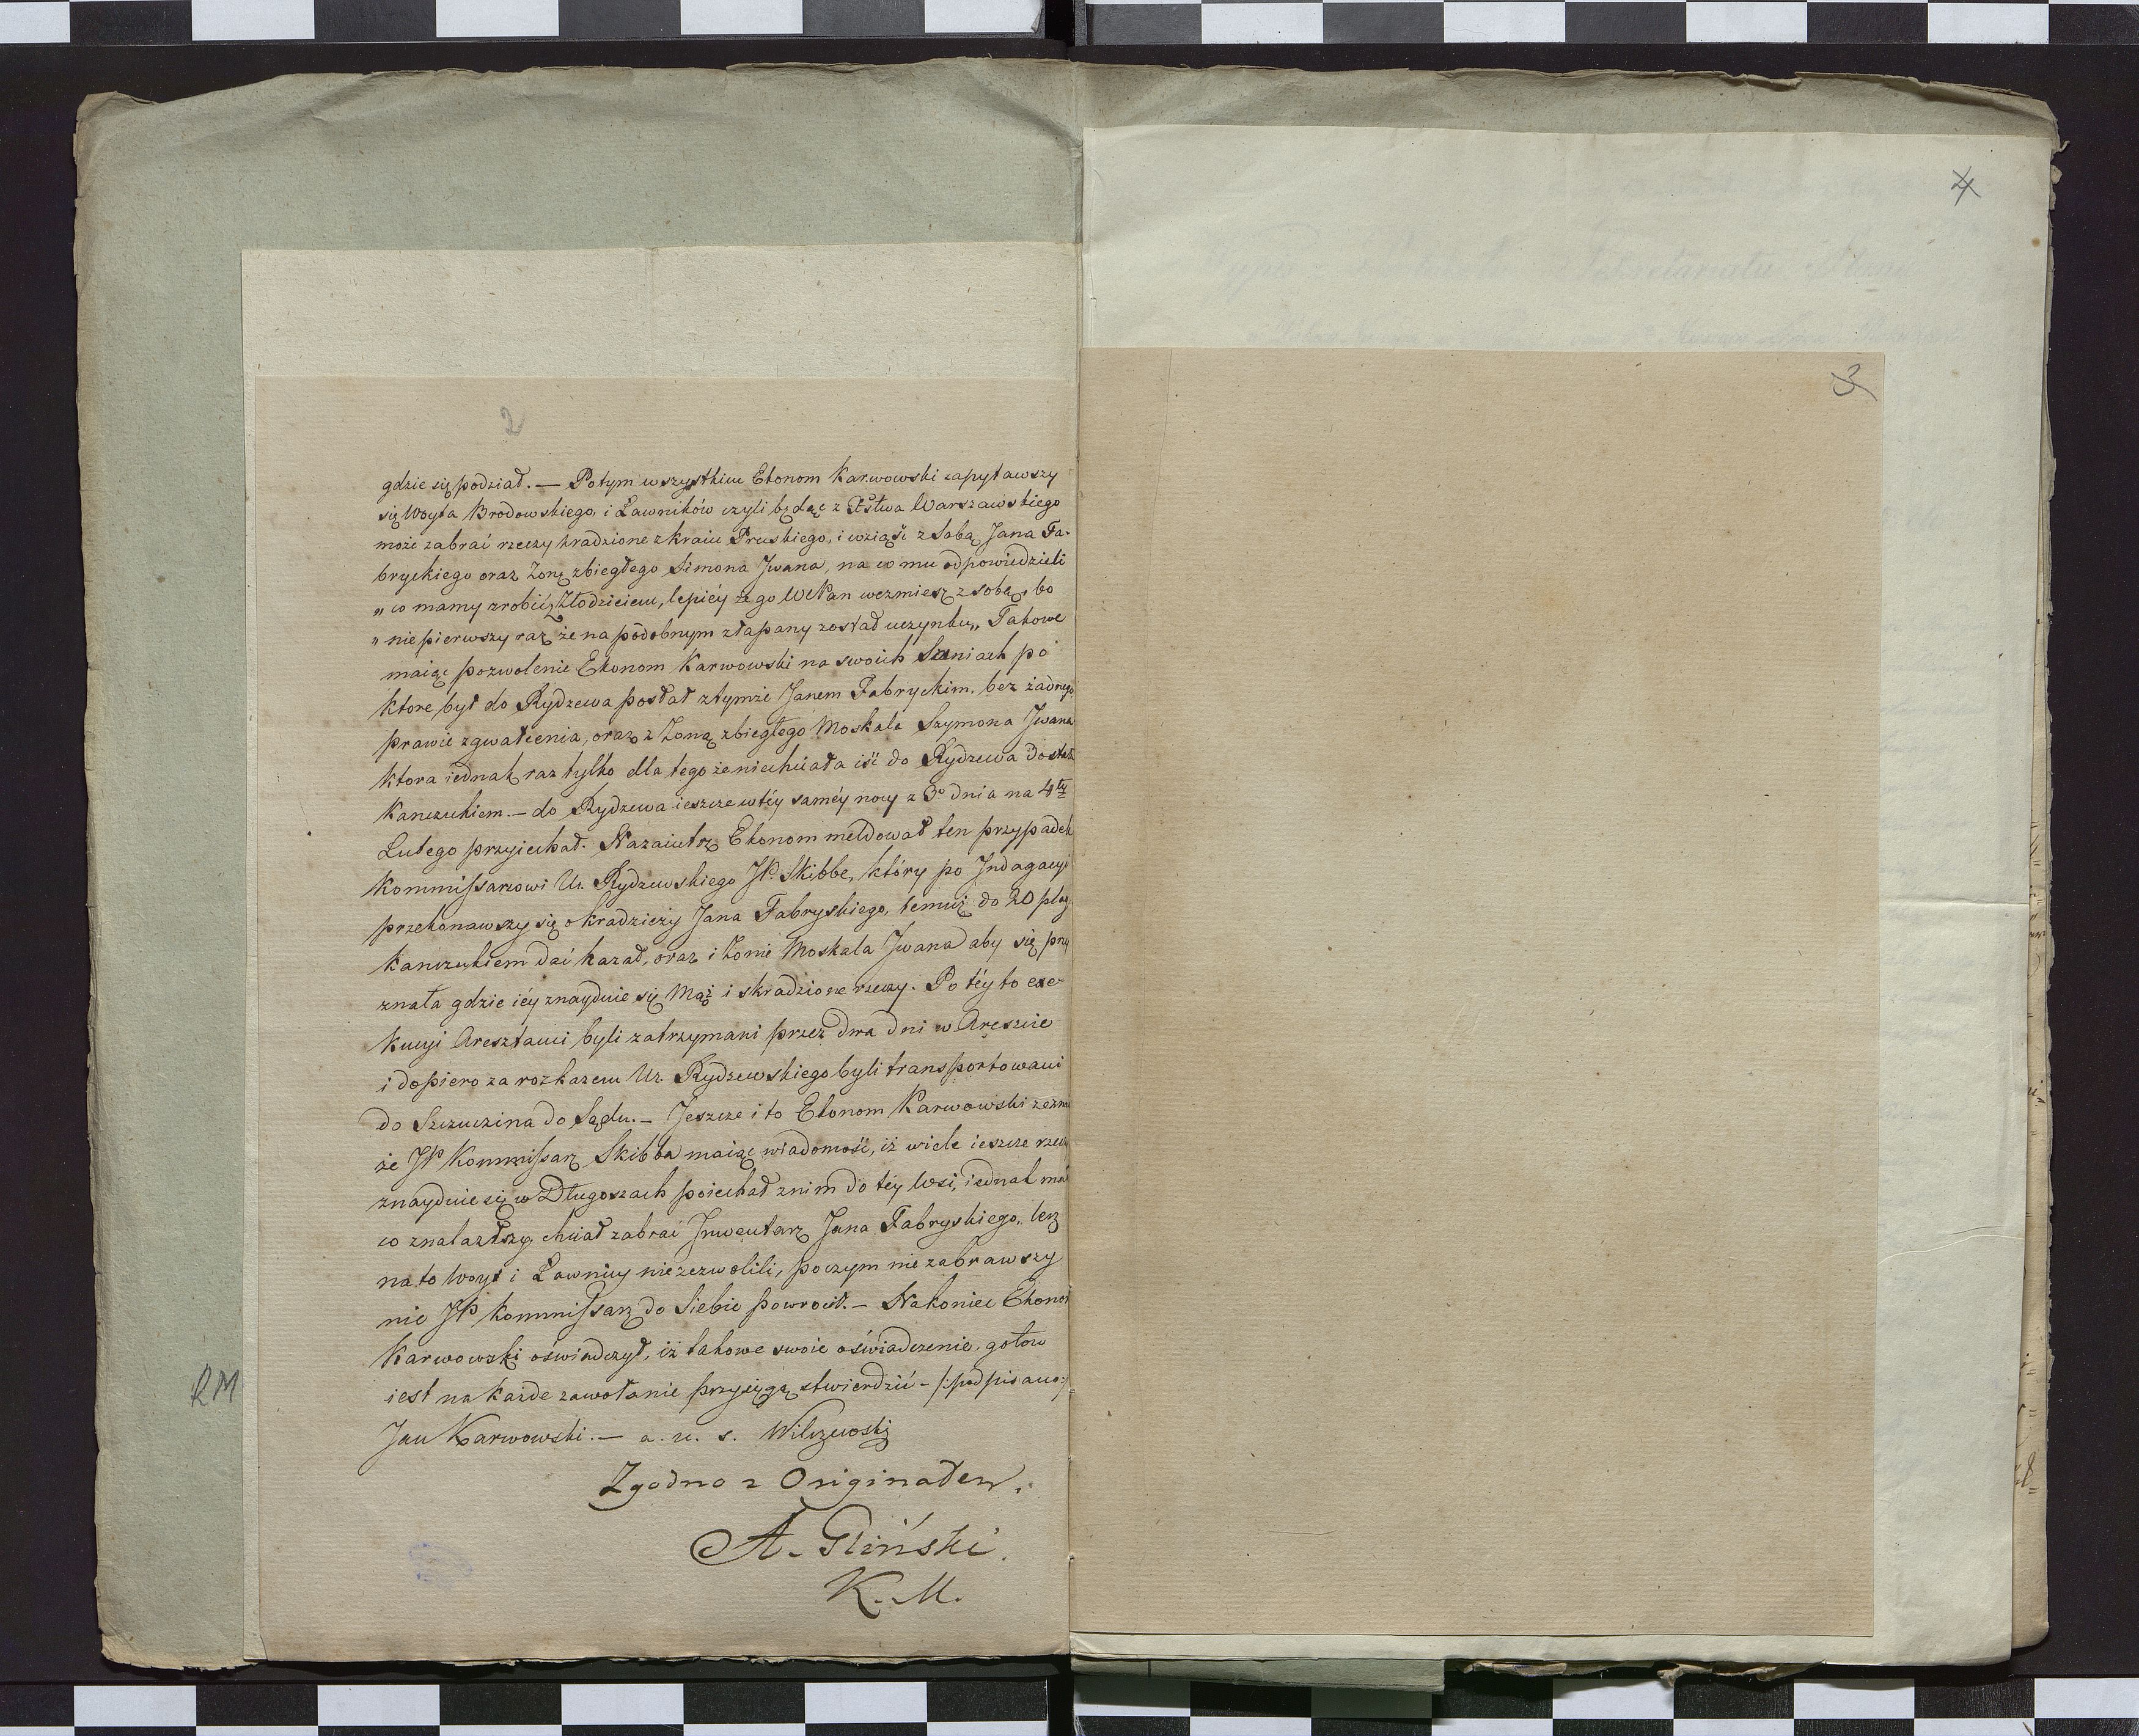 4
3
2
gdzie się podział. — Potym wszystkim Ekonom Karwowski zapytawszy
się Woyta Brodowskiego, i Ławników czyli będąc z Xstwa Warszawskiego
może zabrać rzeczy kradzione z kraiu Pruskiego, i wziąść z Sobą Jana Fa-
bryckiego oraz Żonę zbiegłego Simona Jwana, na co mu odpowiedzieli
„co mamy zrobić z Złodzieiem, lepiéy że go WPan wezmiesz z sobą, bo
„nie pierwszy raz że na podobnym złapany został uczynku„ Takowe
maiąc pozwolenie Ekonom Karwowski na swoich Saniach po
ktore był do Rydzewa posłał z tymże Janem Fabryckim. bez żadnego
prawie zgwałcenia, oraz z Żoną zbiegłego Moskala Szymona Jwana
ktora iednak raz tylko dla tego że niechciała iść do Rydzewa dostała
Kanczukiem. — do Rydzewa ieszcze w téy saméy nocy z 3º dnia na 4ty
Lutego przyiechał. Nazaiutrz Ekonom meldował ten przypadek
Kommissarzowi Ur. Rydzewskiego JP. Skibbe, który po Jndagacyi
przekonawszy się o kradzieży Jana Fabryskiego, temuż do 20 plag
Kanczukiem dać kazał, oraz i Żonie Moskala Jwana aby się przy
znała gdzie iéy znayduie się Mąż i skradzione rzeczy. Po téy to exe-
kucyi Aresztanci byli zatrzymani przez dwa dni w Areszcie
i dopiero za rozkazem Ur. Rydzewskiego byli transportowani
do Szczuczina do Sądu. — Jeszcze i to Ekonom Karwowski zezna
że JP Kommissarz Skibba maiąc wiadomość, iż wiele ieszcze rzeczy
znayduie się w Długoszach poiechał z nim do tey Wsi, iednak mało
co znalazłszy, chciał zabrać Jnwentarz Jana Fabryskiego, lecz
na to Woyt i Ławnicy nie zezwolili, poczym nie zabrawszy
nic JP Kommissarz do Siebie powrocił. — Nakoniec Ekonom
Karwowski oświadczył, iż takowe swoie oświadczenie, gotow
iest na każde zawołanie przysięgą stwierdzić — /:podpisano:/
Jan Karwowski. — a. u. s. Wilczewski
Zgodno z Originałem.
A. Gliński.
K. M.
RM